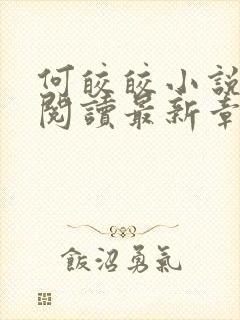 何皎皎小說
閱讀最新章
飯沼勇氣